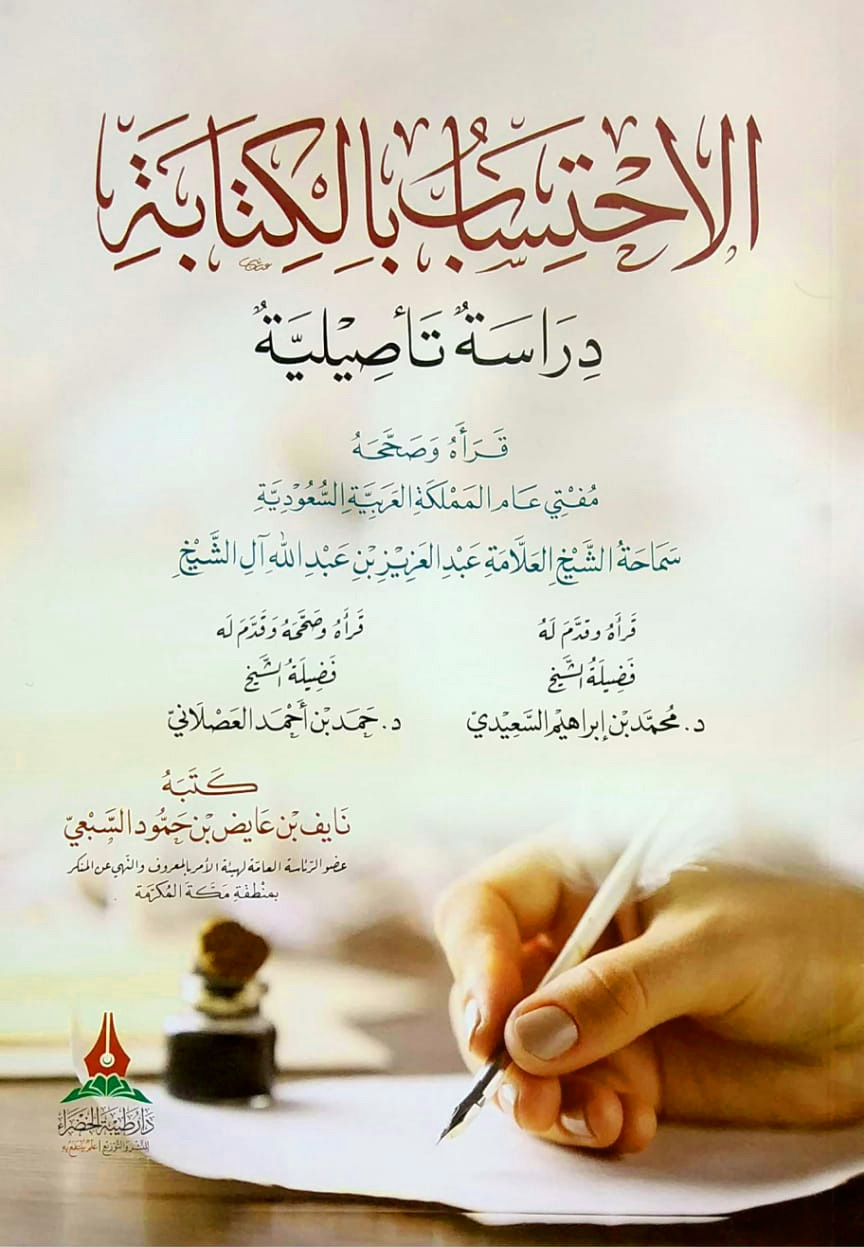 الاحْتِسَابُ بِالكِتَابَةِ
دِرَاسَةٌ تَأصِيْلِيَّةٌ
قَرَأَهُ وَصَحَّحَهُ
مُفْتِي عَام المَمْلَكَةِ العَرَبِيَّةِ السُّعُوْدِيَّةِ
سَمَاحَةُ الشَّيْخِ العَلَّامَةِ عَبْدِ العَزِيْزِ بْنِ عَبْدِ اللهِ آلِ الشَّيْخِ
قَرَأَهُ وَقَدَّمَ لَهُ
فَضِيلَةُ الشَّيْخِ
د. مُحَمَّد بْن إبرَاهِيْم السَّعِيْدِيّ
قَرَأَهُ وَصَحَّحَهُ وَقَدَّمَ لَه
فَضِيلَةُ الشَّيْخِ
د. حَمَد بْن أَحْمَد العَصْلَانِيّ
كَتَبَهُ
نَايِف بْن عَايِض بْن حَمُّود السَّبْعِيّ
عضو الرّئاسة العامّة لهيئة الأمر بالمعروف والنّهي عن المنكر
بمنْطقةِ مَكّة المُكرّمة
دَارُ طَيْبَةَ الخَضْرَاء
للنَّشْر والتَّوزيْع | عِلمٌ يُنتَفَعُ بِهِ